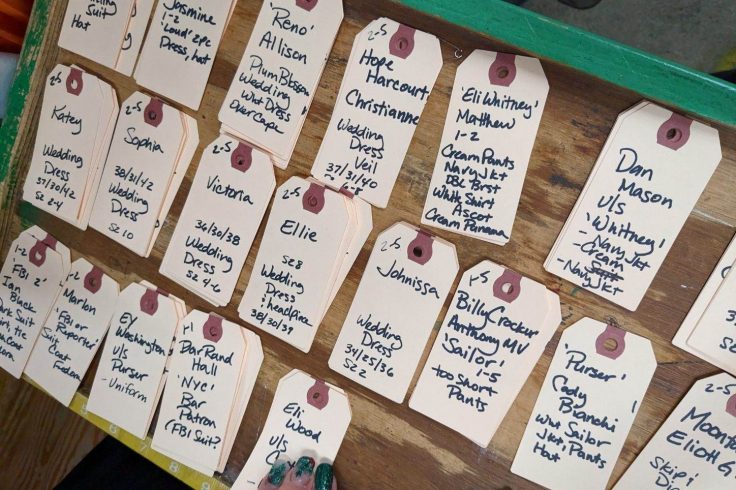 Suit
Hat
Jasmine
1-2
'Loud' 2pc
Dress, hat
'Reno'
Allison
Plum Blossom
Wedding
Wht Dress
Over Cape
Hope
Harcourt,
Christianne
Wedding
Dress
Veil
37/31/40
6-8
'Eli Whitney'
Matthew
1-2
Cream Pants
Navy Jkt
Dbl Brst
White Shirt
Ascot
Cream Panama
Dan
Mason
u/s
'Whitney'
-Navy Jkt
-Cream
-Navy Jkt
2-5
Katey
Wedding
Dress
37/30/42
Sz 2-4
2-5
Sophia
38/31/42
Wedding
Dress
Sz 10
2-5
Victoria
36/30/38
Wedding
Dress
Sz 4-6
2-5
Ellie
Sz 8
Wedding
Dress
& headpiece
38/30/39
2-5
Johnissa
Wedding
Dress
34/25/36
Sz 2
1-5
Billy Crocker
Anthony MV
'Sailor'
1-5
too short
Pants
'Purser'
Cody
Bianchi
Wht Sailor
Jkt, Pants
Hat
2-5
Elliott G.
Skip i
1-2
'FBI 2'
Ian
Black
Suit
1-2
Marlon
'FBI or
Reporter'
Suit
Coat
Fedora
Ey
Washington
u/s
Purser
-Uniform
1-1
BarRand
Hall
'NYC'
Bar
Patron
(FBI Suit?
Eli
Wood
u/s